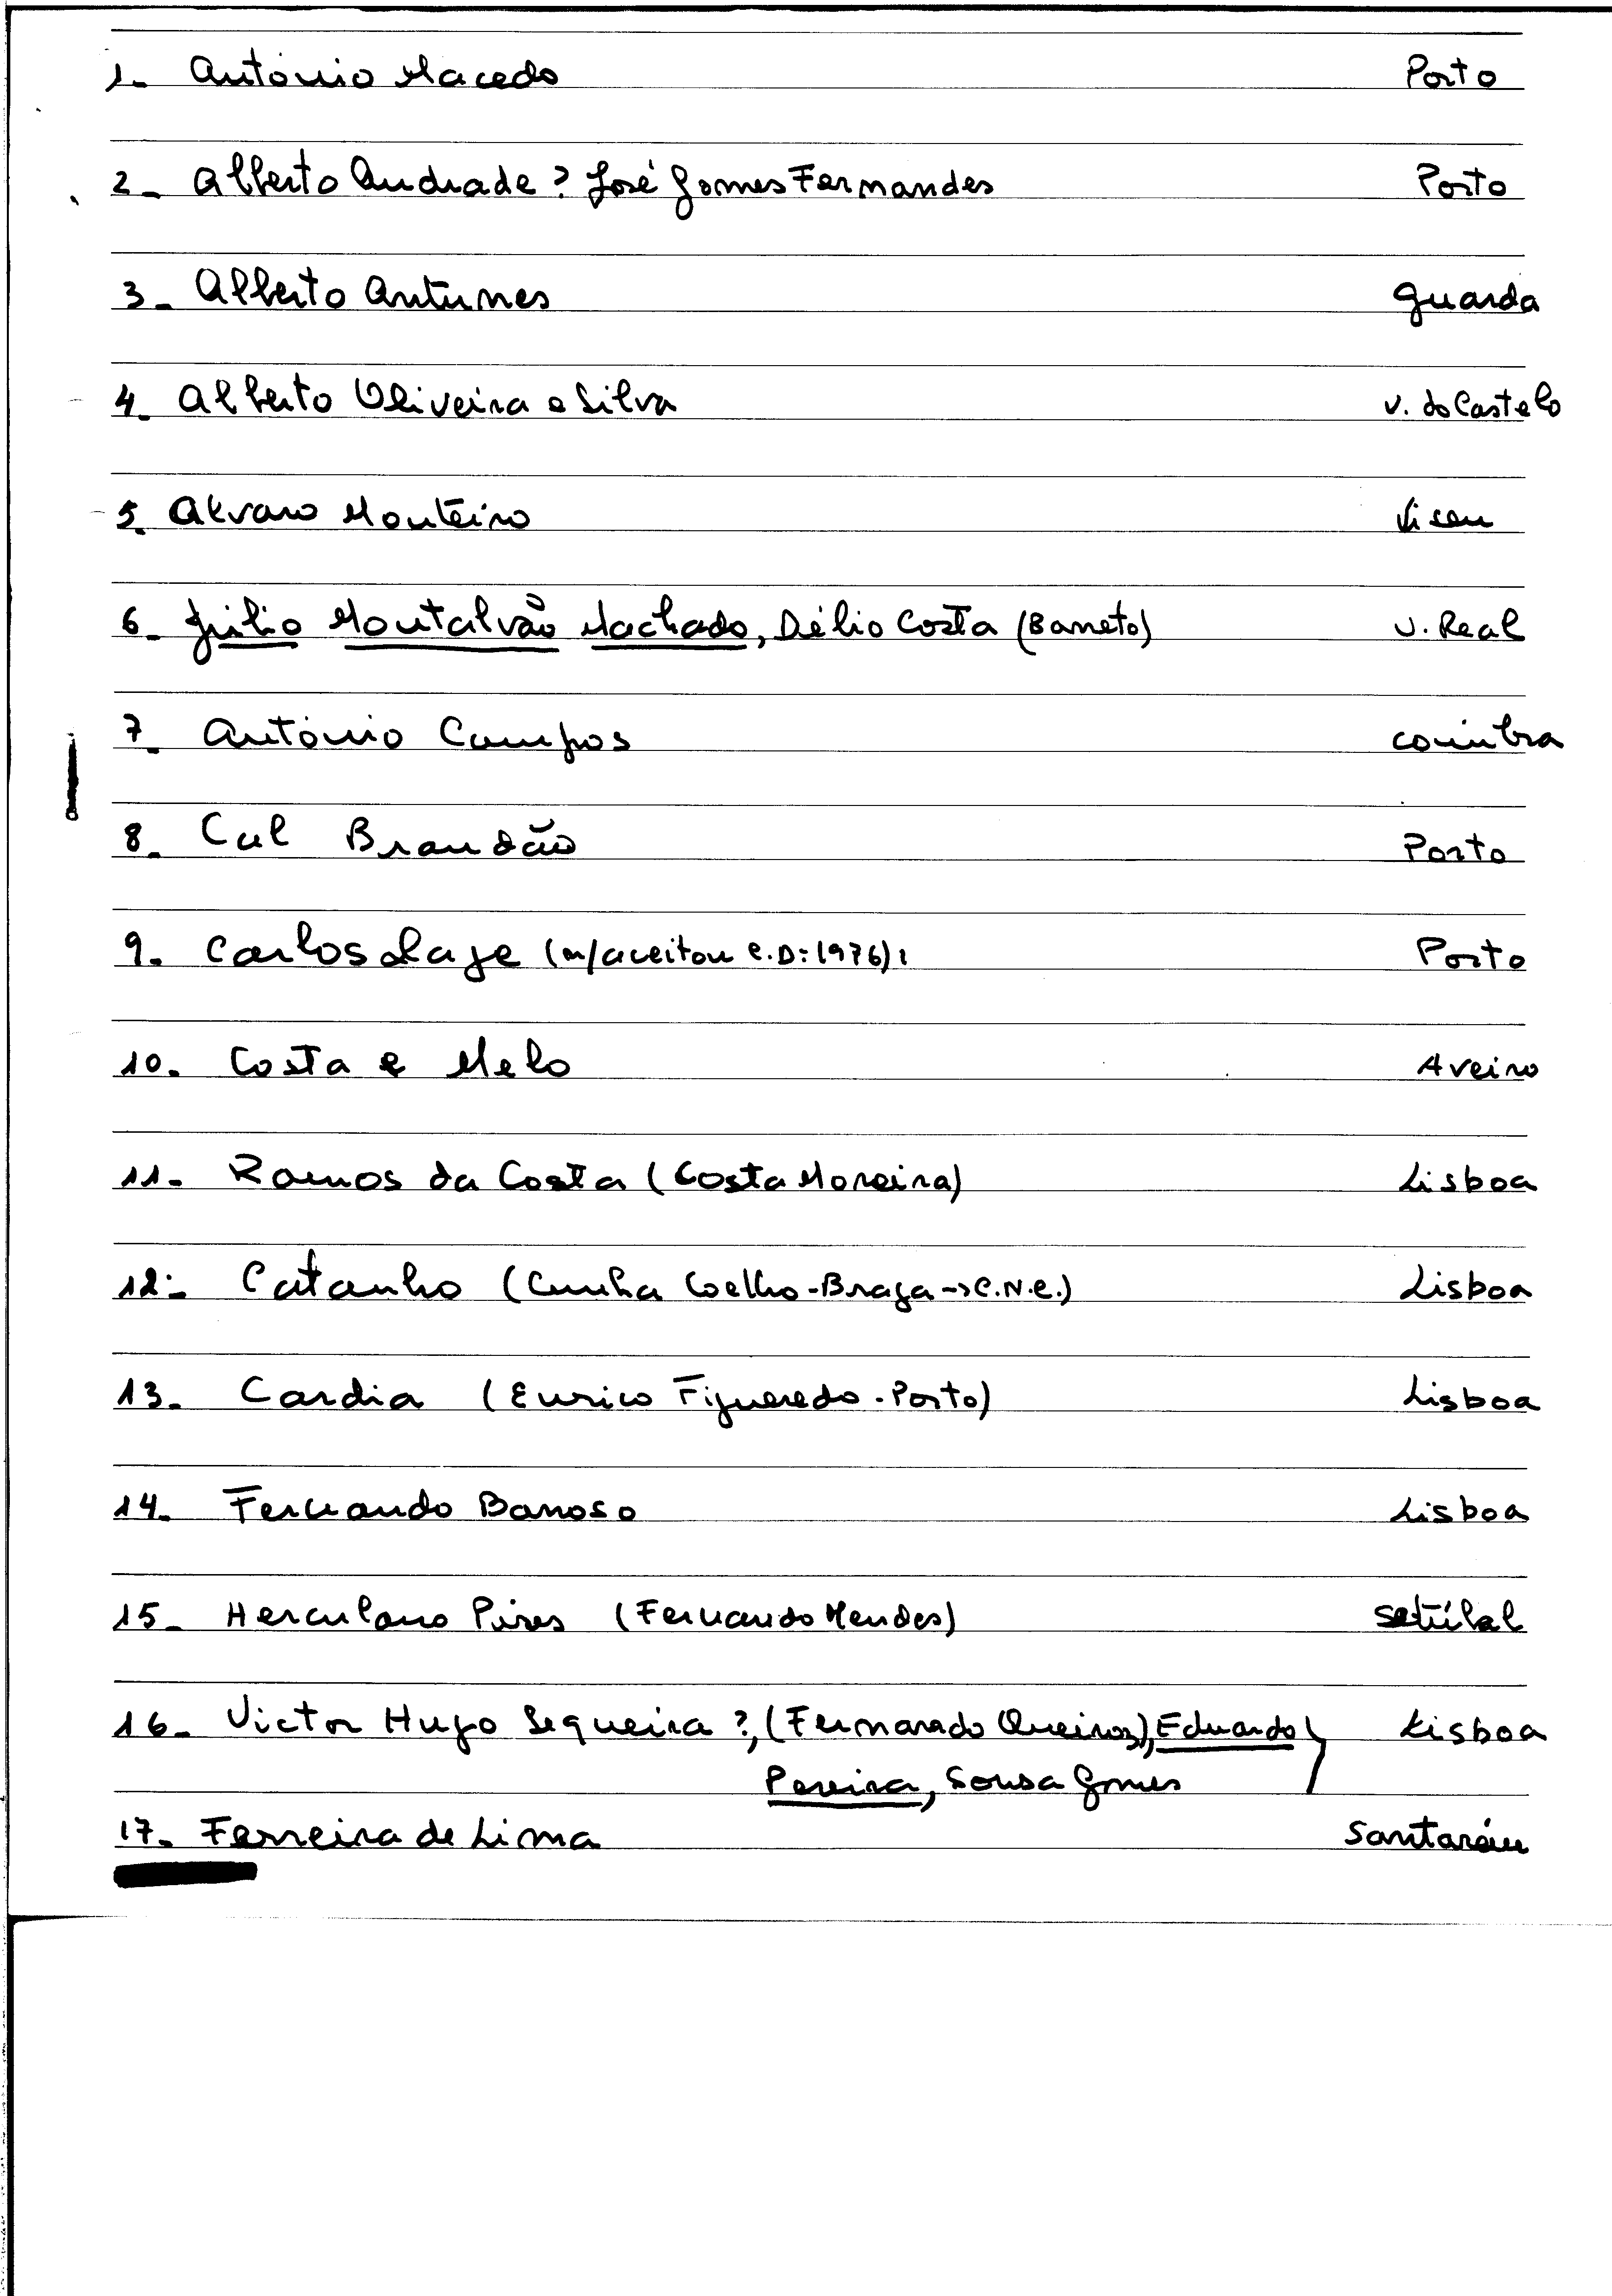 1- António Macedo Porto
2- Alberto Andrade? José Gomes Fernandes Porto
3- Alberto Antunes Guarda
4- Alberto Oliveira e Silva V. do Castelo
5- Alvaro Monteiro Viseu
6- Júlio Montalvão Machado, Délio Costa (Barreto) V. Real
7- António Campos Coimbra
8- Cal Brandão Porto
9- Carlos Lage (n/aceitou C.D: 1976): Porto
10- Costa e Melo Aveiro
11- Ramos da Costa (Costa Moreira) Lisboa
12- Catanho (Cunha Coelho-Braga->C.N.C.) Lisboa
13- Cardia (Eurico Figueredo - Porto) Lisboa
14- Fernando Barroso Lisboa
15- Herculano Pires (Fernando Mendes) Setúbal
16- Victor Hugo Sequeira?, (Fernando Queiroz), Eduardo Lisboa
Pereira, Sousa Gomes
17- Ferreira de Lima Santarém